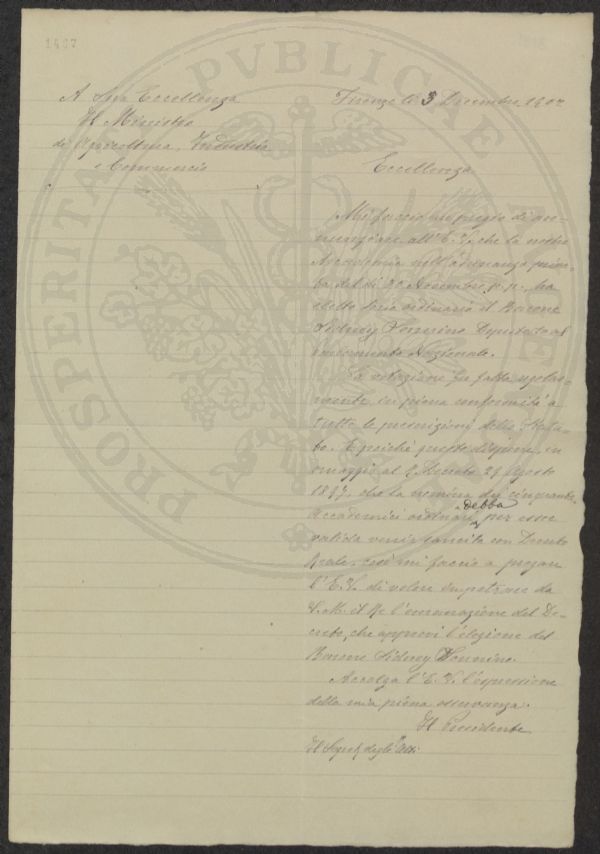 1407
A Sua Eccellenza
Il Ministro
di Agricoltura, Industria
e Commercio
Firenze li 3 Dicembre 1907
Eccellenza
Mi faccio un pregio di an-
nunziare all'E.V. che la nostra
Accademia nell'adunanza
del dì 20 Novembre p.p. ha
eletto Socio ordinario il Barone
Sidney Sonnino Deputato al
Parlamento Nazionale.
La votazione fu fatta regolar-
mente in piena conformità a
tutte le prescrizioni dello Statu-
to. E poiché questo dispone, in
omaggio al R. Decreto 29 Agosto
1897, che la nomina dei cinquanta
Accademici ordinari debba per esser
valida venir sancita con Decreto
Reale, così mi faccio a pregare
l'E.V. di volere impetrare da
S.M. il Re l'emanazione del De-
creto, che approvi l'elezione del
Barone Sidney Sonnino.
Accolga l'E.V. l'espressione
della mia piena osservanza.
Il Presidente
Il Segret. degli Atti
PROSPERITA PVBLICAE